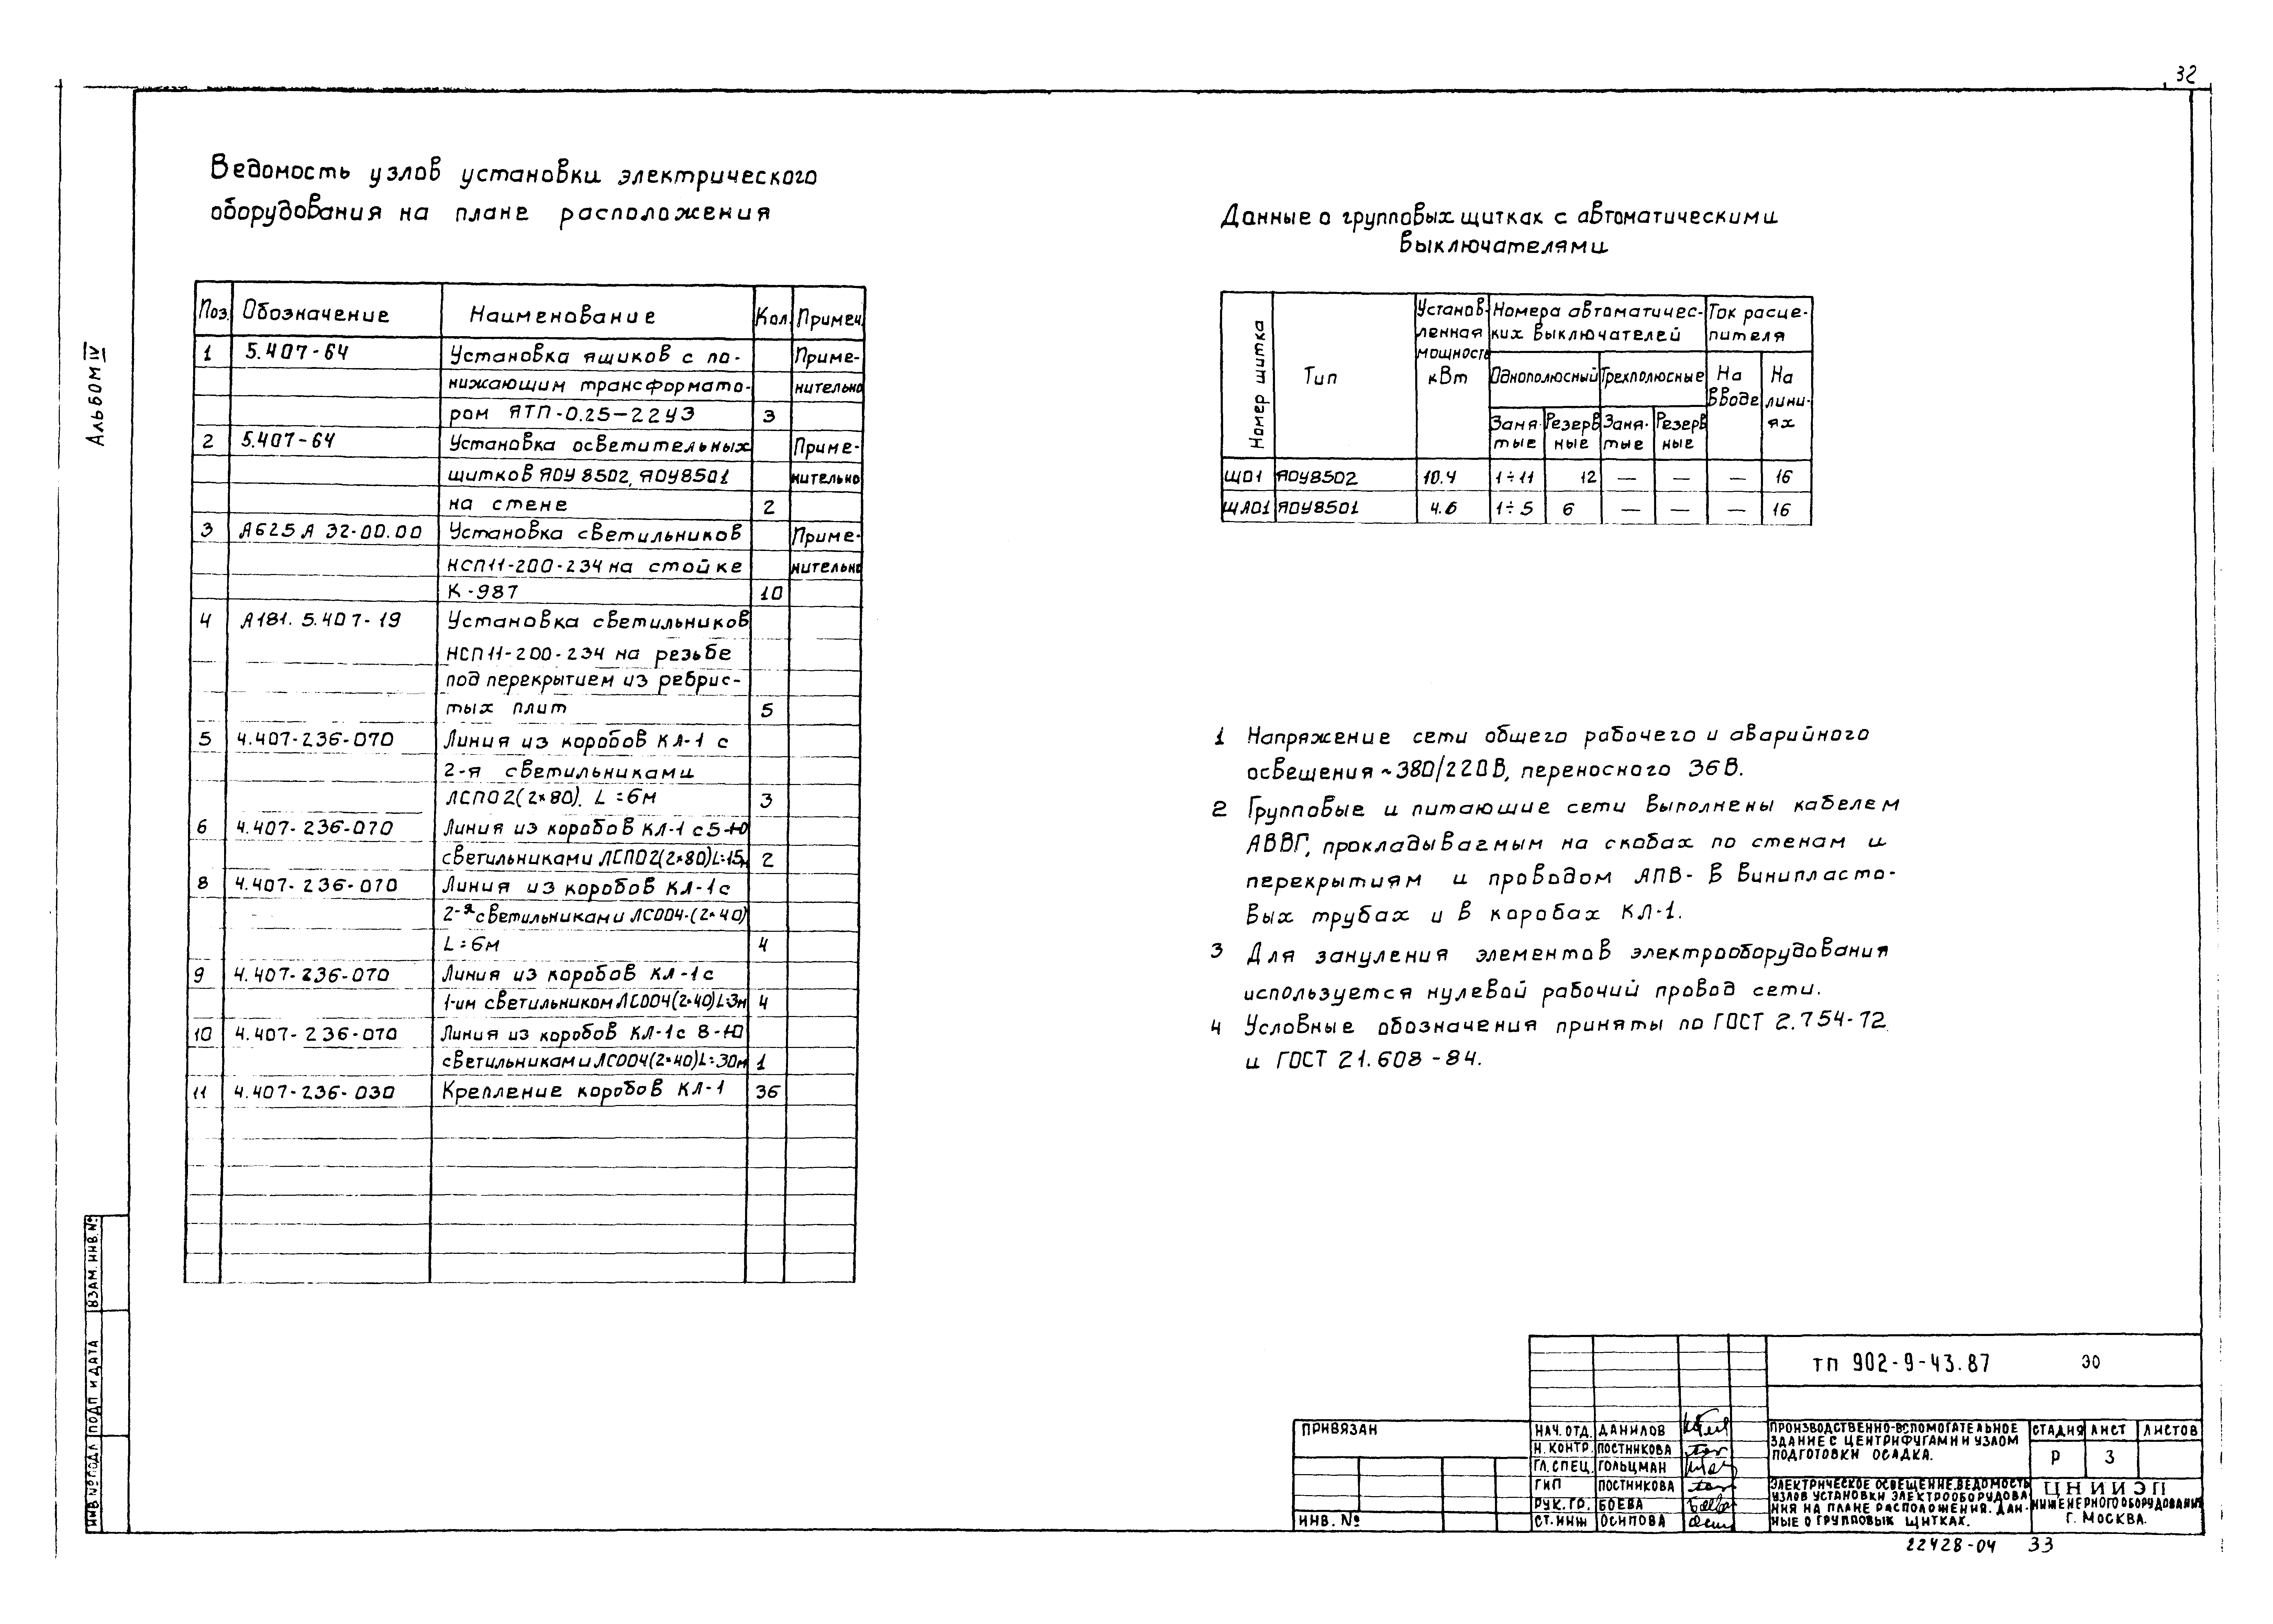 32
Альбом IV
Ведомость узлов установки электрического
оборудования на плане расположения
Поз. Обозначение Наименование Кол. Примеч.
1 5.407-64 Установка ящиков с по- Приме-
нижающим трансформато- нительно
ром ЯТП-0.25-22УЗ 3
2 5.407-64 Установка осветительных Приме-
щитков ЯОУ 8502, ЯОУ8501 нительно
на стене 2
3 А625А 32-00.00 Установка светильников Приме-
НСП11-200-234 на стойке нительно
К-987 10
4 А181. 5.407-19 Установка светильников
НСП11-200-234 на резьбе
под перекрытием из ребрис-
тых плит 5
5 4.407-236-070 Линия из коробов КЛ-1 с
2-я светильниками
ЛСПО2(2×80). L=6м 3
6 4.407-236-070 Линия из коробов КЛ-1 с 5-ю
светильниками ЛСПО2(2×80)L=15м 2
8 4.407-236-070 Линия из коробов КЛ-1с
2-я светильниками ЛСОО4-(2×40)
L=6м 4
9 4.407-236-070 Линия из коробов КЛ-1с
1-им светильником ЛСОО4(2×40)L=3м 4
10 4.407-236-070 Линия из коробов КЛ-1с 8-ю
светильниками ЛСОО4(2×40)L=30м 1
11 4.407-236-030 Крепление коробов КЛ-1 36
Данные о групповых щитках с автоматическими
выключателями
Номер щитка Тип Установ- Номера автоматичес- Ток расце-
ленная ких выключателей пителя
мощность
кВт Однополюсный Трехполюсные На На
вводе лини-
Заня- Резерв Заня- Резерв ях
тые ные тые ные
ЩО1 ЯОУ8502 10.4 1÷11 12 — — — 16
ЩАО1 ЯОУ8501 4.6 1÷5 6 — — — 16
1 Напряжение сети общего рабочего и аварийного
освещения ~380/220В, переносного 36В.
2 Групповые и питающие сети выполнены кабелем
АВВГ, прокладываемым на скобах по стенам и
перекрытиям и проводом АПВ- в винипласто-
вых трубах и в коробах КЛ-1.
3 Для зануления элементов электрооборудования
используется нулевой рабочий провод сети.
4 Условные обозначения приняты по ГОСТ 2.754-72
и ГОСТ 21.608-84.
ВЗАМ. ИНВ. №
ПОДП И ДАТА
ИНВ № ПОДЛ
ПРИВЯЗАН
ИНВ. №
ТП 902-9-43.87 ЭО
НАЧ. ОТД. ДАНИЛОВ
Н. КОНТР. ПОСТНИКОВА
ГЛ. СПЕЦ. ГОЛЬЦМАН
ГИП ПОСТНИКОВА
РУК. ГР. БОЕВА
СТ. ИНЖ ОСИПОВА
ПРОИЗВОДСТВЕННО-ВСПОМОГАТЕЛЬНОЕ
ЗДАНИЕ С ЦЕНТРИФУГАМИ И УЗЛОМ
ПОДГОТОВКИ ОСАДКА.
СТАДИЯ ЛИСТ ЛИСТОВ
Р 3
ЭЛЕКТРИЧЕСКОЕ ОСВЕЩЕНИЕ. ВЕДОМОСТЬ
УЗЛОВ УСТАНОВКИ ЭЛЕКТРООБОРУДОВА
НИЯ НА ПЛАНЕ РАСПОЛОЖЕНИЯ. ДАН-
НЫЕ О ГРУППОВЫХ ЩИТКАХ.
ЦНИИЭП
ИНЖЕНЕРНОГО ОБОРУДОВАНИЯ
Г. МОСКВА.
22428-04 33